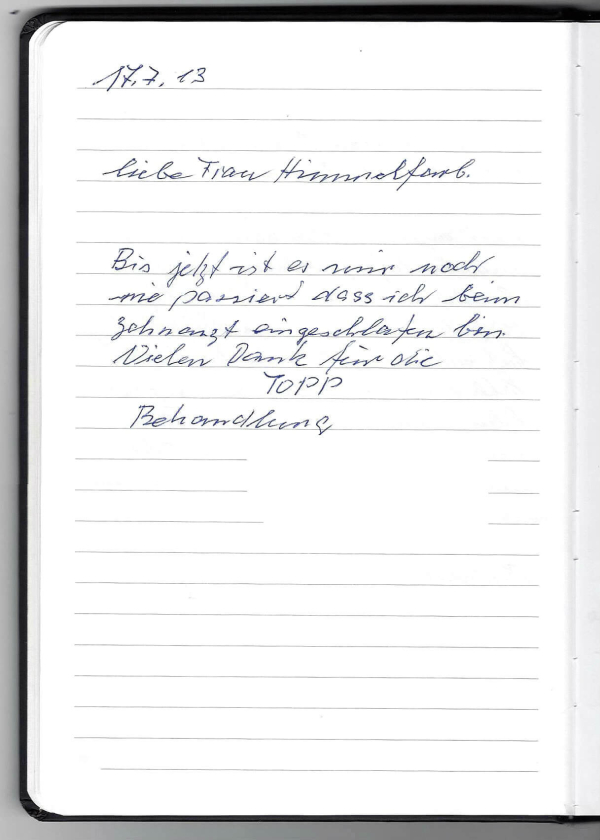 17.7.13
liebe Frau Himmelfarb.
Bis jetzt ist es mir noch
nie passiert dass ich beim
Zahnarzt eingeschlafen bin.
Vielen Dank für die
TOPP
Behandlung